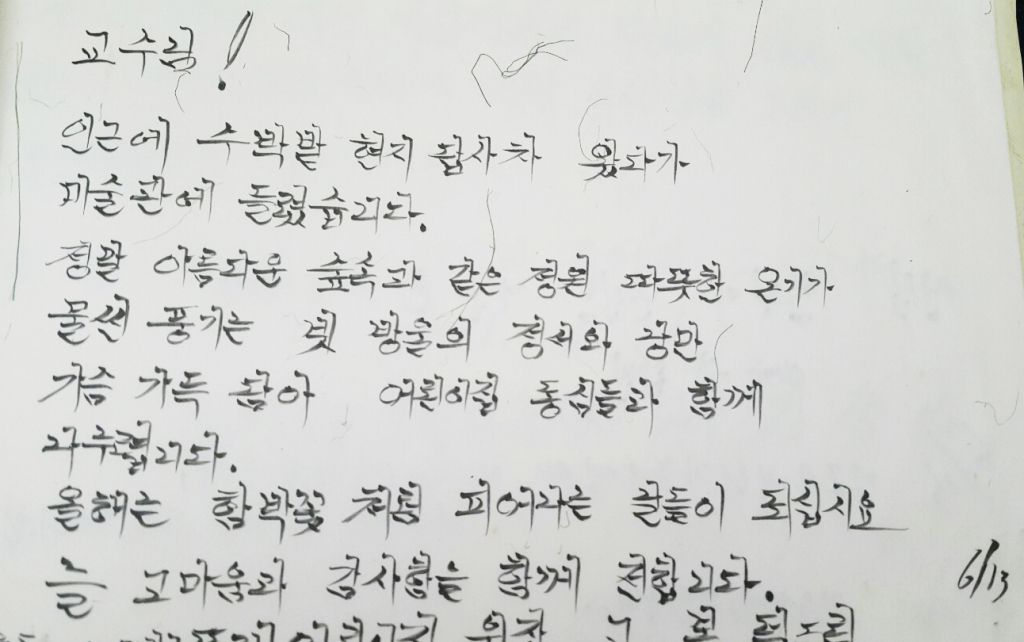 교수님!
인근에 수박밭 현지 답사차 왔다가
미술관에 들렸습니다.
정말 아름다운 숲속과 같은 정원 따뜻한 온기가
물씬 풍기는 빗방울의 정서와
가슴 가득 담아 어린이집 동심들과 함께
나누렵니다.
올해는 함박꽃 처럼 피어나는 들이 되십시요
늘 고마움과 감사함을 함께 전합니다.
6/13